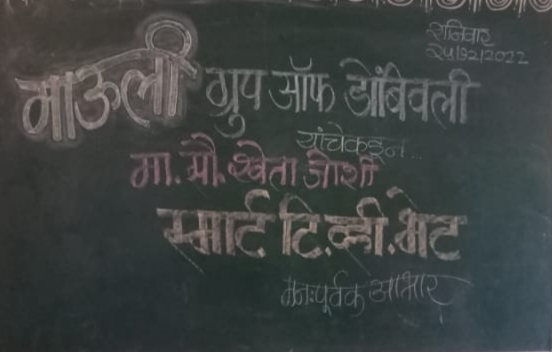 शनिवार
२५/१२/२०२२
माऊली ग्रुप ऑफ डोंबिवली
यांचेकडून...
मा. सौ. श्वेता जोशी
स्मार्ट टि.व्ही. भेट
मनःपूर्वक आभार